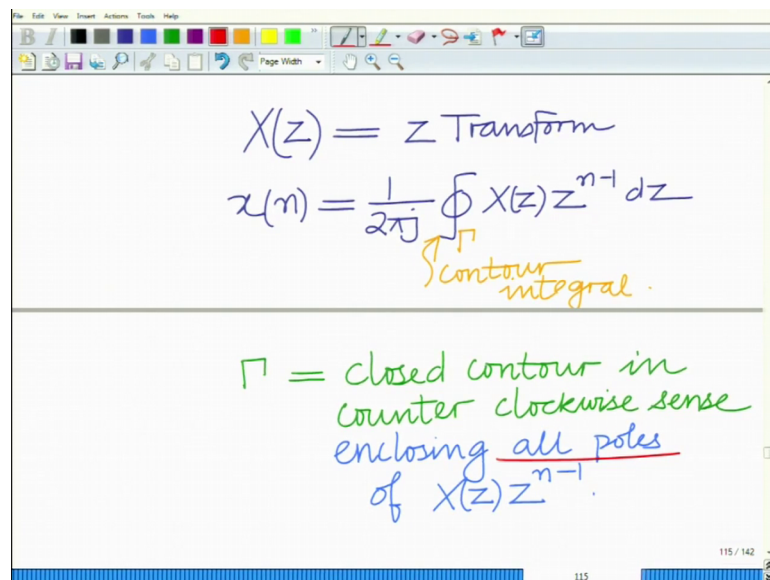 File Edit View Insert Actions Tools Help
B I
Page Width
X(z) = z Transform
x(n) = 1/2πj ∮Γ X(z) z^{n-1} dz
contour
integral.
Γ = closed contour in
counter clockwise sense
enclosing all poles
of X(z) z^{n-1}.
115 / 142
115